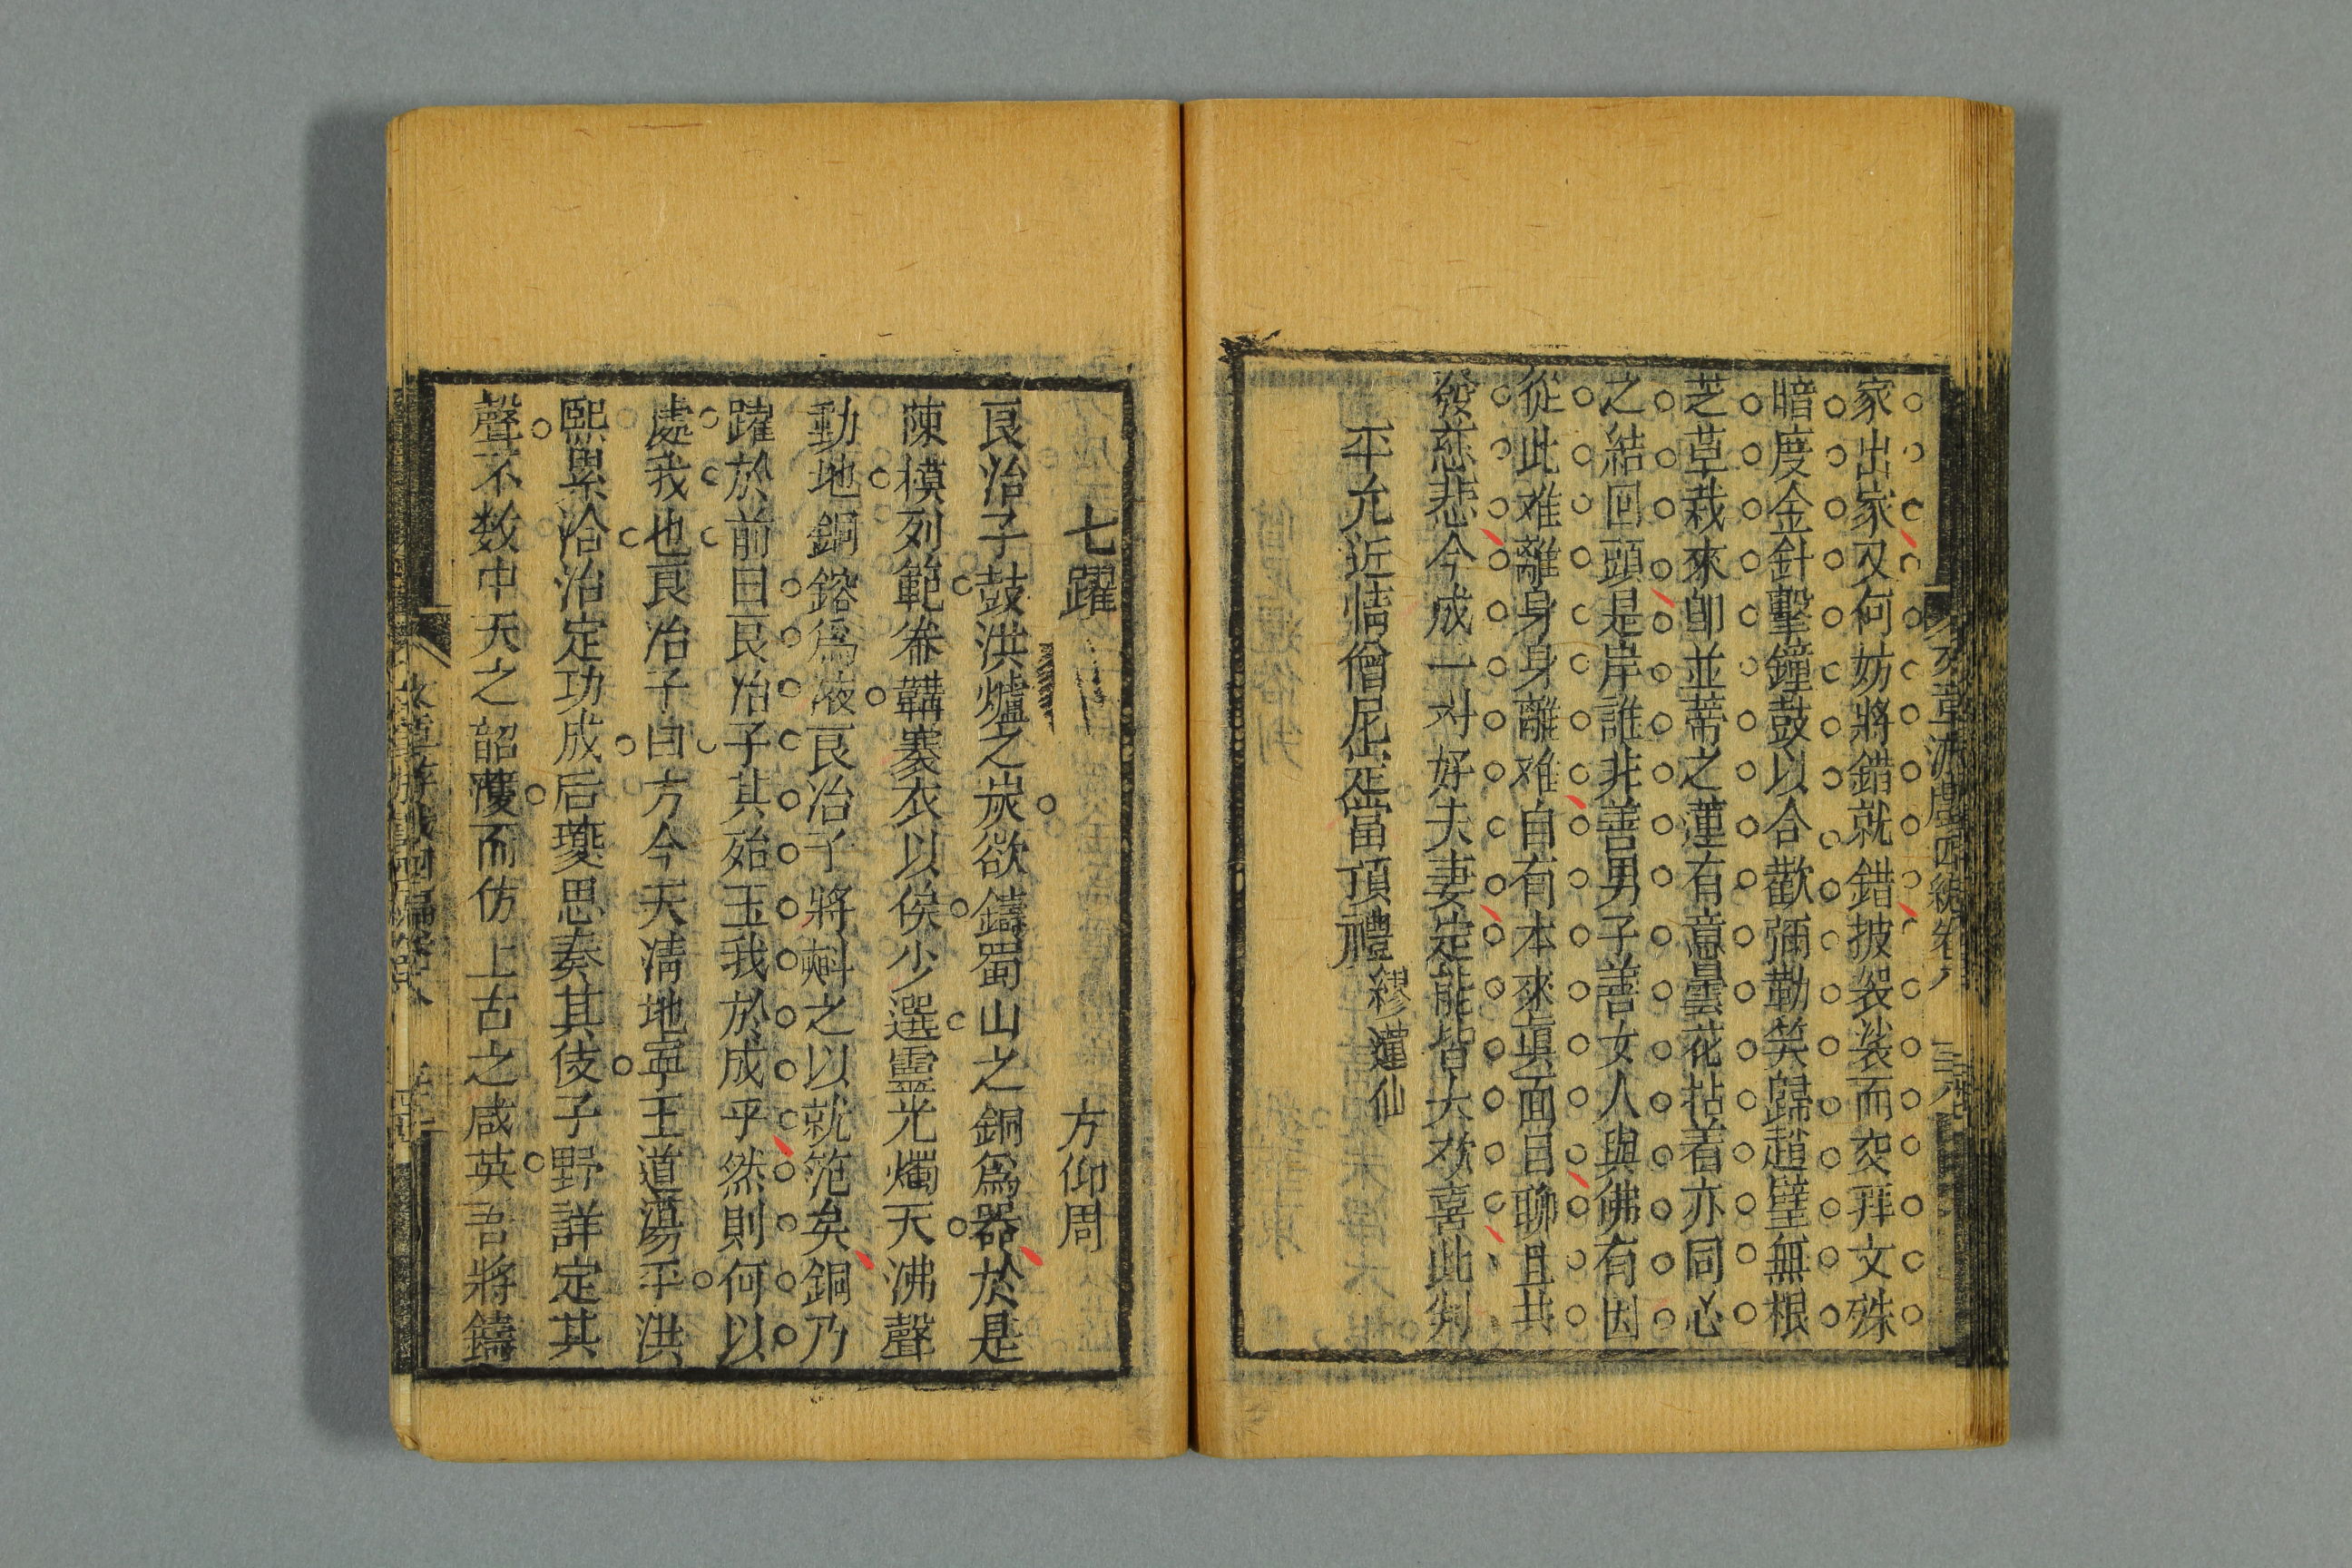 家出家又何妨將錯就錯披袈裟而交拜文殊
暗度金針擊鐘鼓以合歡彌勒笑歸趙璧無根
芝草栽來卽並蒂之蓮有意曇花拈着亦同心
之結回頭是岸誰非善男子善女人與佛有因
從此难離身身離难自有本來真面目聊且共
發慈悲今成一对好夫妻定能皆大欢喜此判
平允近情僧尼當頂禮 繆蓮仙
七躍 方仰周
良冶子鼓洪爐之炭欲鑄蜀山之銅爲器於是
陳模列範衮韝褰衣以俟少選靈光燭天沸聲
動地銅鎔爲液良冶子將㪺之以就范矣銅乃
躍於前曰良冶子其殆玉我於成乎然則何以
處我也良冶子曰方今天清地寧王道蕩平洪
熙累洽治定功成后夔思奏其伎子野詳定其
聲不数中天之韶頀而仿上古之咸英吾將鑄
文章游戲四編卷八